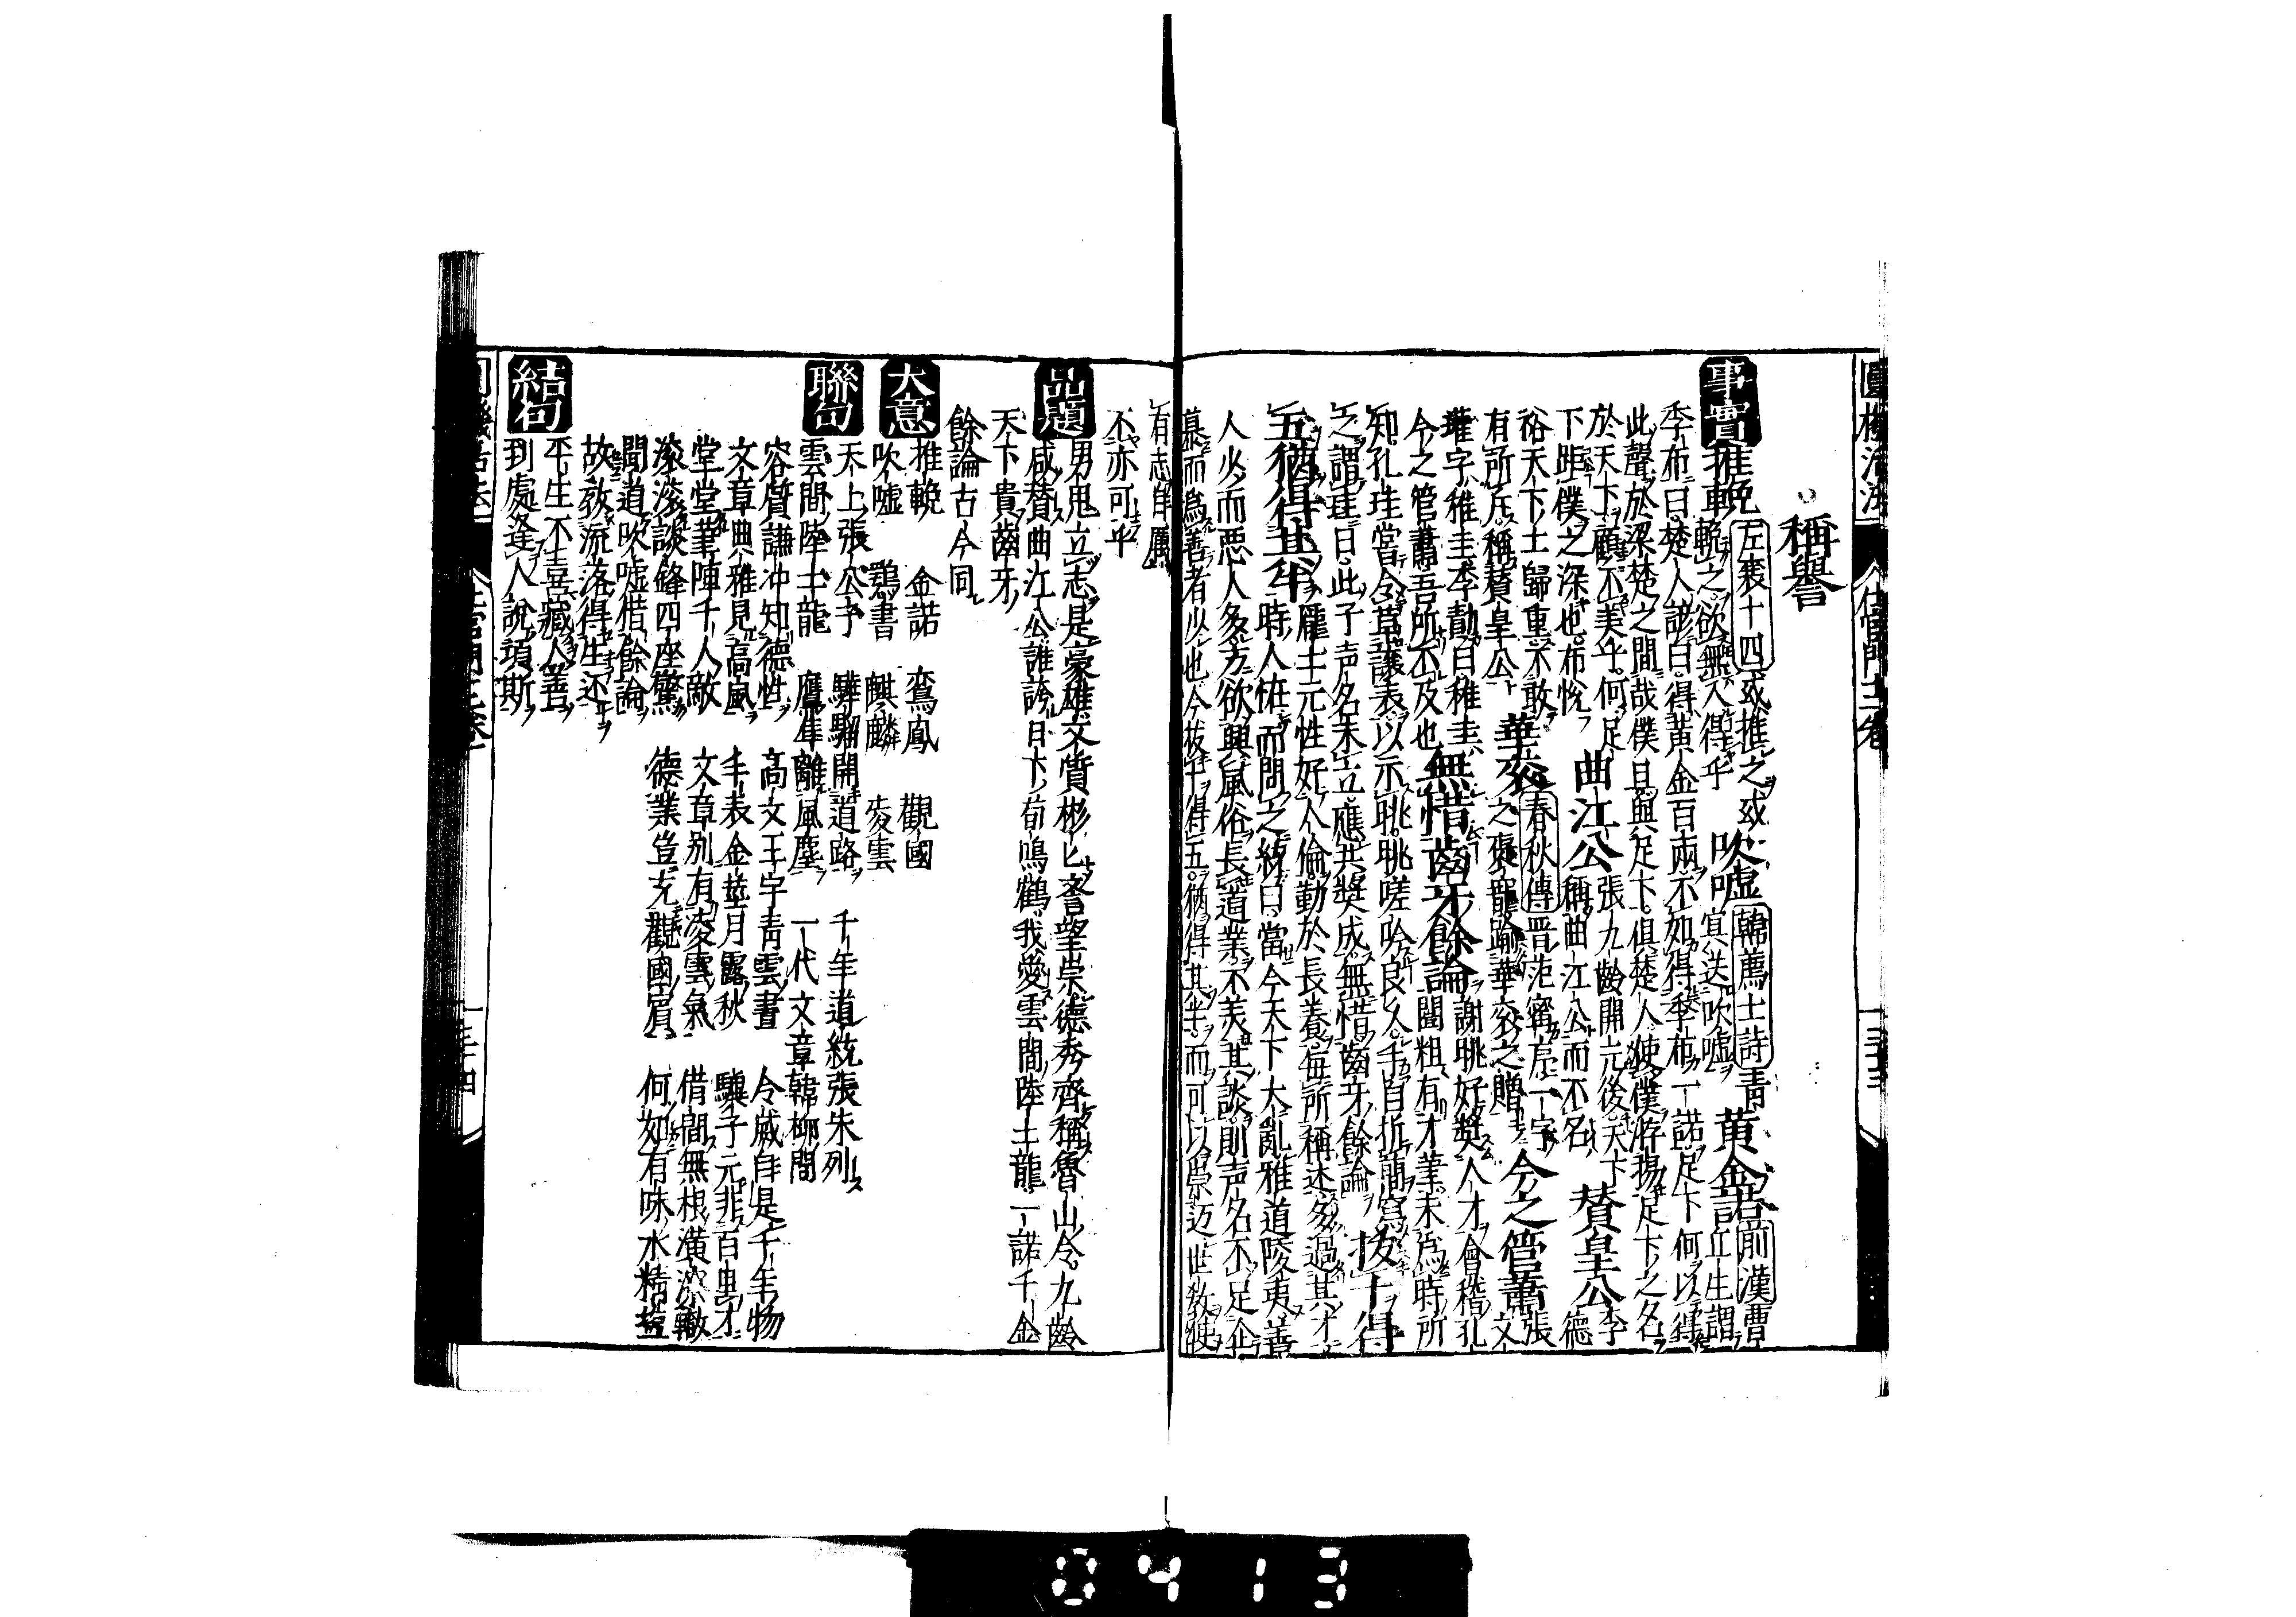 稱譽
事實 推輓 左襄十四或推之或輓之欲無入得乎 吹噓 韓薦士詩青冥送吹噓 黃金諾 前漢曹丘生謂
季布曰楚人諺曰得黃金百兩不如得季布一諾足下何以得
此聲於梁楚之間哉僕且與足下俱楚人使僕游揚足下之名
於天下顧不美乎何足下距僕之深也布悅 曲江公 張九齡開元後天下稱曲江公而不名 贊皇公 李德
裕天下士歸重不敢有所斥稱贊皇公 華袞 春秋傳晋范甯序一字之褒寵踰華袞之贈 今之管蕭 文張
瓘字稚圭李勣曰稚圭今之管蕭吾所不及也 無惜齒牙餘論 謝朓好奬人才會稽孔
闓粗有才筆未爲時所知孔珪嘗令草讓表以示朓朓嗟吟良久手自折簡寫
之謂珪曰此子声名未立應共奬成無惜齒牙餘論 拔十得
五猶得其半 龐士元性好人倫勤於長養每所稱述多過其才
時人怪而問之統曰當今天下大亂雅道陵夷善
人少而惡人多方欲興風俗長道業不美其談則声名不足企
慕而爲善者少也今拔十得五猶得其半而可以崇迈世敎使
有志自厲
不亦可乎
品題 男児立志是豪雄文質彬匕耆望崇德秀齊稱魯山令九齡
咸賛曲江公誰誇日下荀鳴鶴我愛雲間陸士龍一諾千金
天下貴齒牙
餘論古今同
大意 推輓 金諾 鸞鳳 觀國
吹噓 鶚書 麒麟 凌雲
聯句 天上張公子 驊騮開道路 千年道統張朱列
雲間陸士龍 鷹隼離風塵 一代文章韓柳間
容質謙冲知德性 高文王宇青雲書 今歲自是千年物
文章典雅見高風 手表金莖月露秋 驥子元非百里才
堂堂筆陣千人敵 文章別有凌雲氣 借問無根潢潦轍
滾滾談鋒四座驚 德業豈充觀國賓 何如有味水精鹽
結句 聞道吹噓借餘論
故敎流落得生还
平生不喜藏人善
到處逢人說項斯